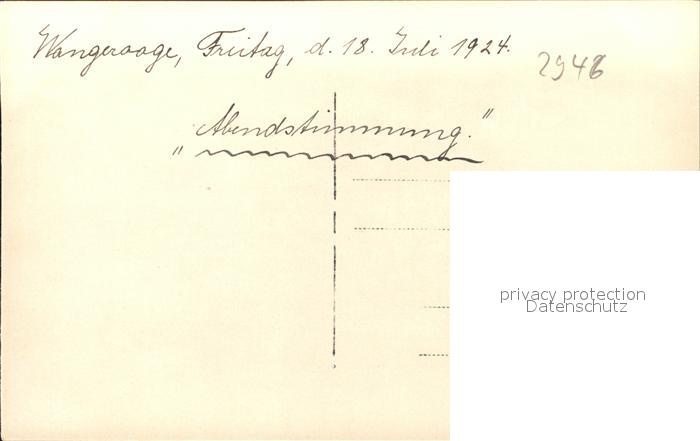 Wangerooge, Freitag, d. 18. Juli 1924.
2946
„Abendstimmung."
privacy protection
Datenschutz